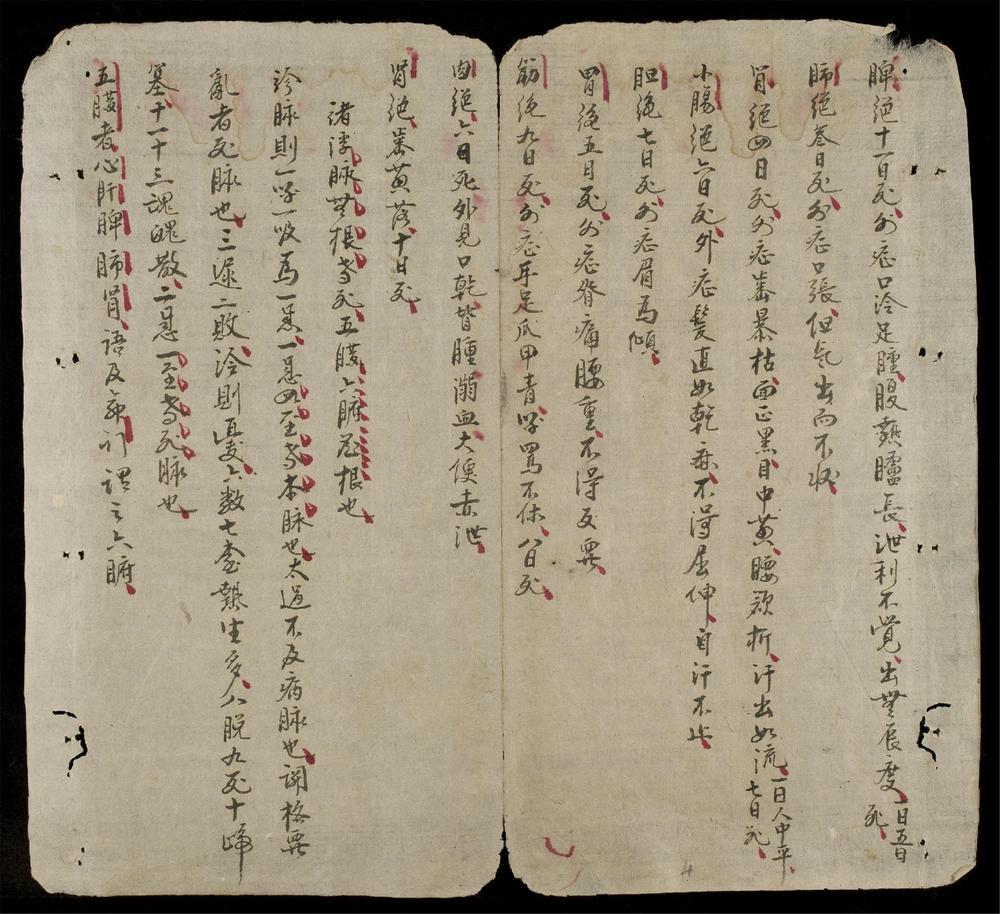 脾絕十一日死外症口冷足腫腹熱臚長泄利不覺出無辰度一曰五日死
肺絕叁日死外症口張但氣出而不收
腎絕四日死外症齒暴枯面正黑目中黃腰欲折汗出如流一曰人中平七日死
小腸絕六日死外症髮直如乾麻不得屈伸自汗不止
胆絕七日死外症眉為傾
胃絕五日死外症脊痛腰重不得反覆
筋絕九日死外症手足爪甲青呼罵不休八日死
肉絕六日死外見口乾皆腫溺血大便赤泄
腎絕齒黃落十日死
諸浮脉無根者死五臟六腑為根也
診脉則一呼一吸為一息一息四至者本脉也太過不及病脉也關格覆
亂者死脉也三遲二敗冷則憂六數七極熱生多八脫九死十歸
墓十一十三魂魄散二息一至者死脉也
五臟者心肝脾肺腎語及命門謂之六腑